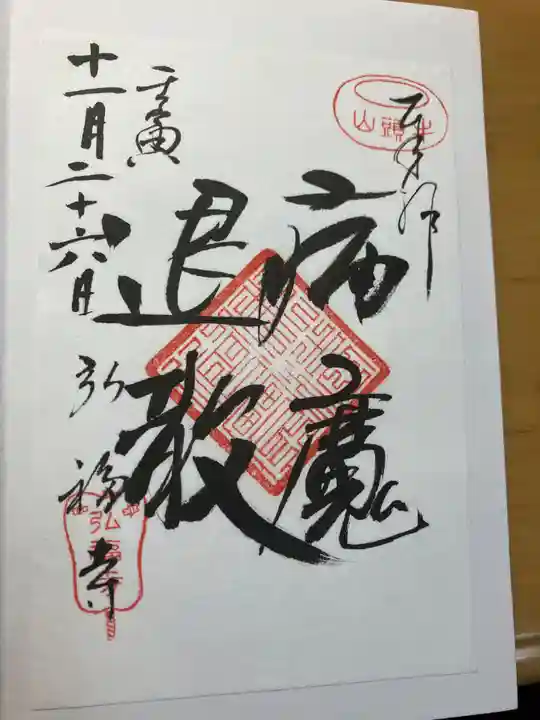 奉拝
牛頭山
病魔
退散
壬寅
十一月二十六日
弘福寺
弘福